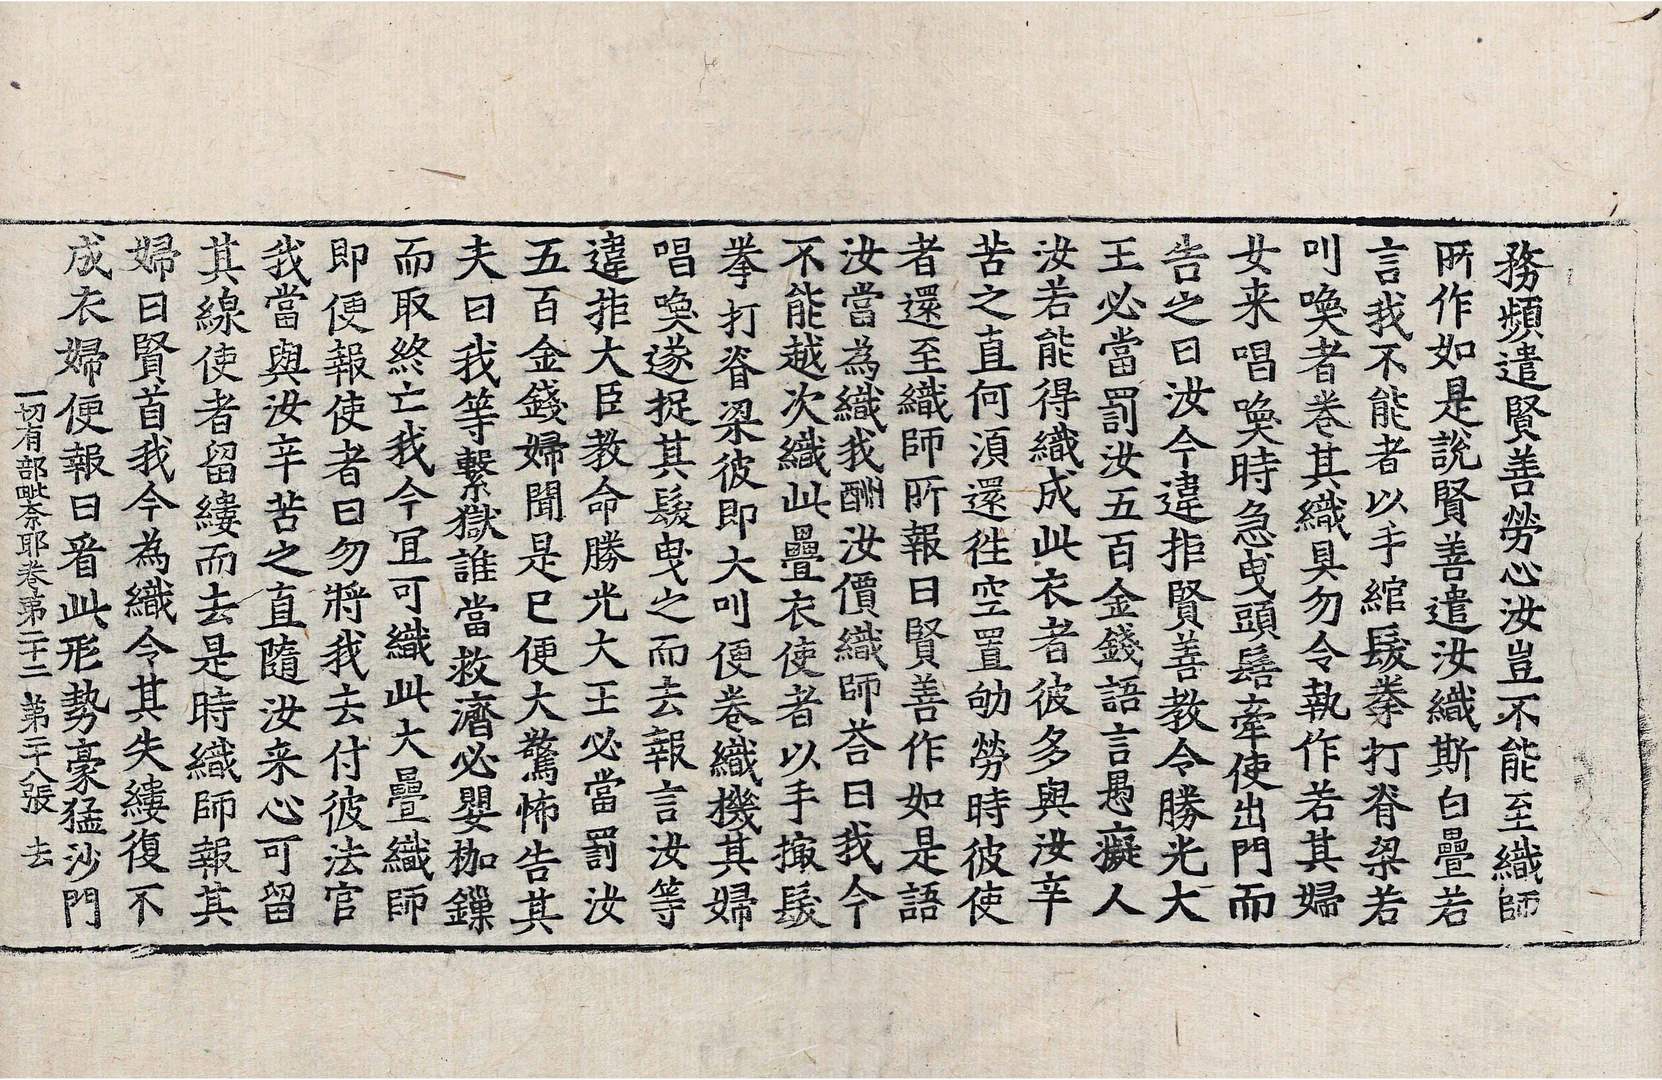 務頻遣賢善勞心汝豈不能至織師
所作如是說賢善遣汝織斯白疊若
言我不能者以手綰髮拳打脊梁若
叫喚者卷其織具勿令執作若其婦
女来唱喚時急曳頭髻牽使出門而
告之曰汝今違拒賢善教令勝光大
王必當罰汝五百金錢語言愚癡人
汝若能得織成此衣者彼多與汝辛
苦之直何湏還徃空置劬勞時彼使
者還至織師所報曰賢善作如是語
汝當為織我酬汝價織師荅曰我今
不能越次織此疊衣使者以手撮髮
拳打脊梁彼即大叫便卷織機其婦
唱喚遂捉其髮曳之而去報言汝等
違拒大臣教命勝光大王必當罰汝
五百金錢婦聞是已便大驚怖告其
夫曰我等繫獄誰當救濟必嬰枷鏁
而取終亡我今冝可織此大疊織師
即便報使者曰勿將我去付彼法官
我當與汝辛苦之直隨汝来心可留
其線使者留縷而去是時織師報其
婦曰賢首我今為織令其失縷復不
成衣婦便報曰看此形勢豪猛沙門
一切有部毗奈耶卷第二十二 第二十八張 去